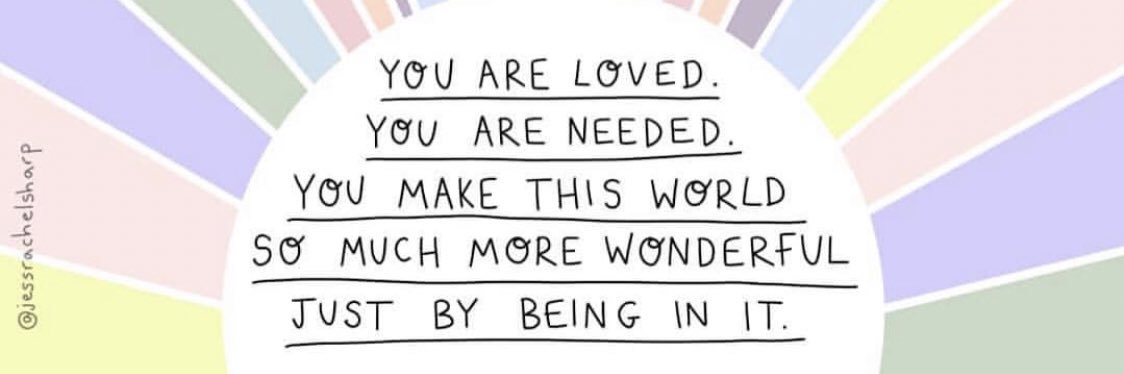 YOU ARE LOVED.
YOU ARE NEEDED.
YOU MAKE THIS WORLD
SO MUCH MORE WONDERFUL
JUST BY BEING IN IT.
@jessrachelsharp